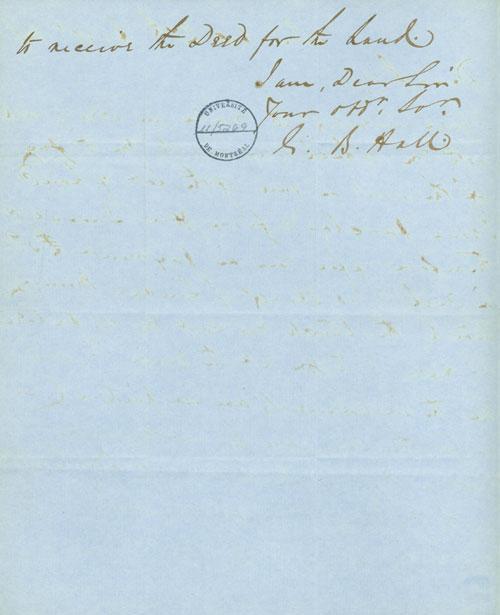 to receive the Deed for the Land.
I am, Dear Sir
Your obdt. Sert.
G. B. Hall.
UNIVERSITÉ
DE MONTRÉAL